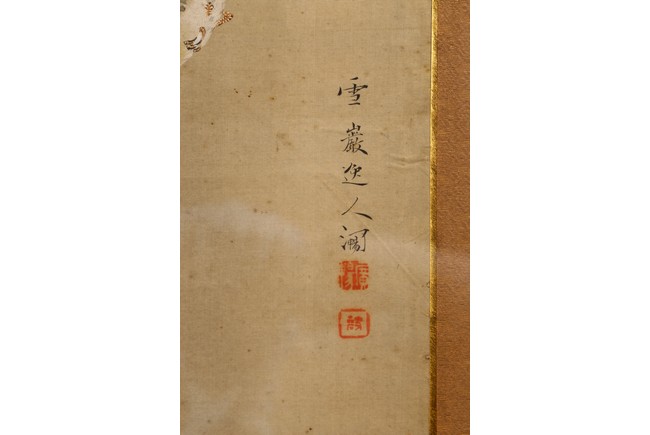 雪巖逸人濶